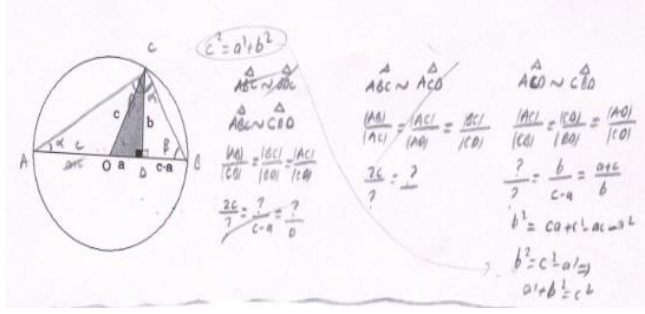 c² = a² + b²
C
c
b
α
A
α
c
O
a
D
c-a
β
B
ABC ~ BDC
ABC ~ CBD
|AB|/|CB| = |BC|/|BD| = |AC|/|CD|
2c/? = ?/c-a = ?/b
ABC ~ ACD
|AB|/|AC| = |AC|/|AD| = |BC|/|CD|
2c/? = ?
ACD ~ CBD
|AC|/|CB| = |CD|/|BD| = |AD|/|CD|
?/? = b/c-a = a+c/b
b² = ca + c² - ac - a²
b² = c² - a² ⇒
a² + b² = c²